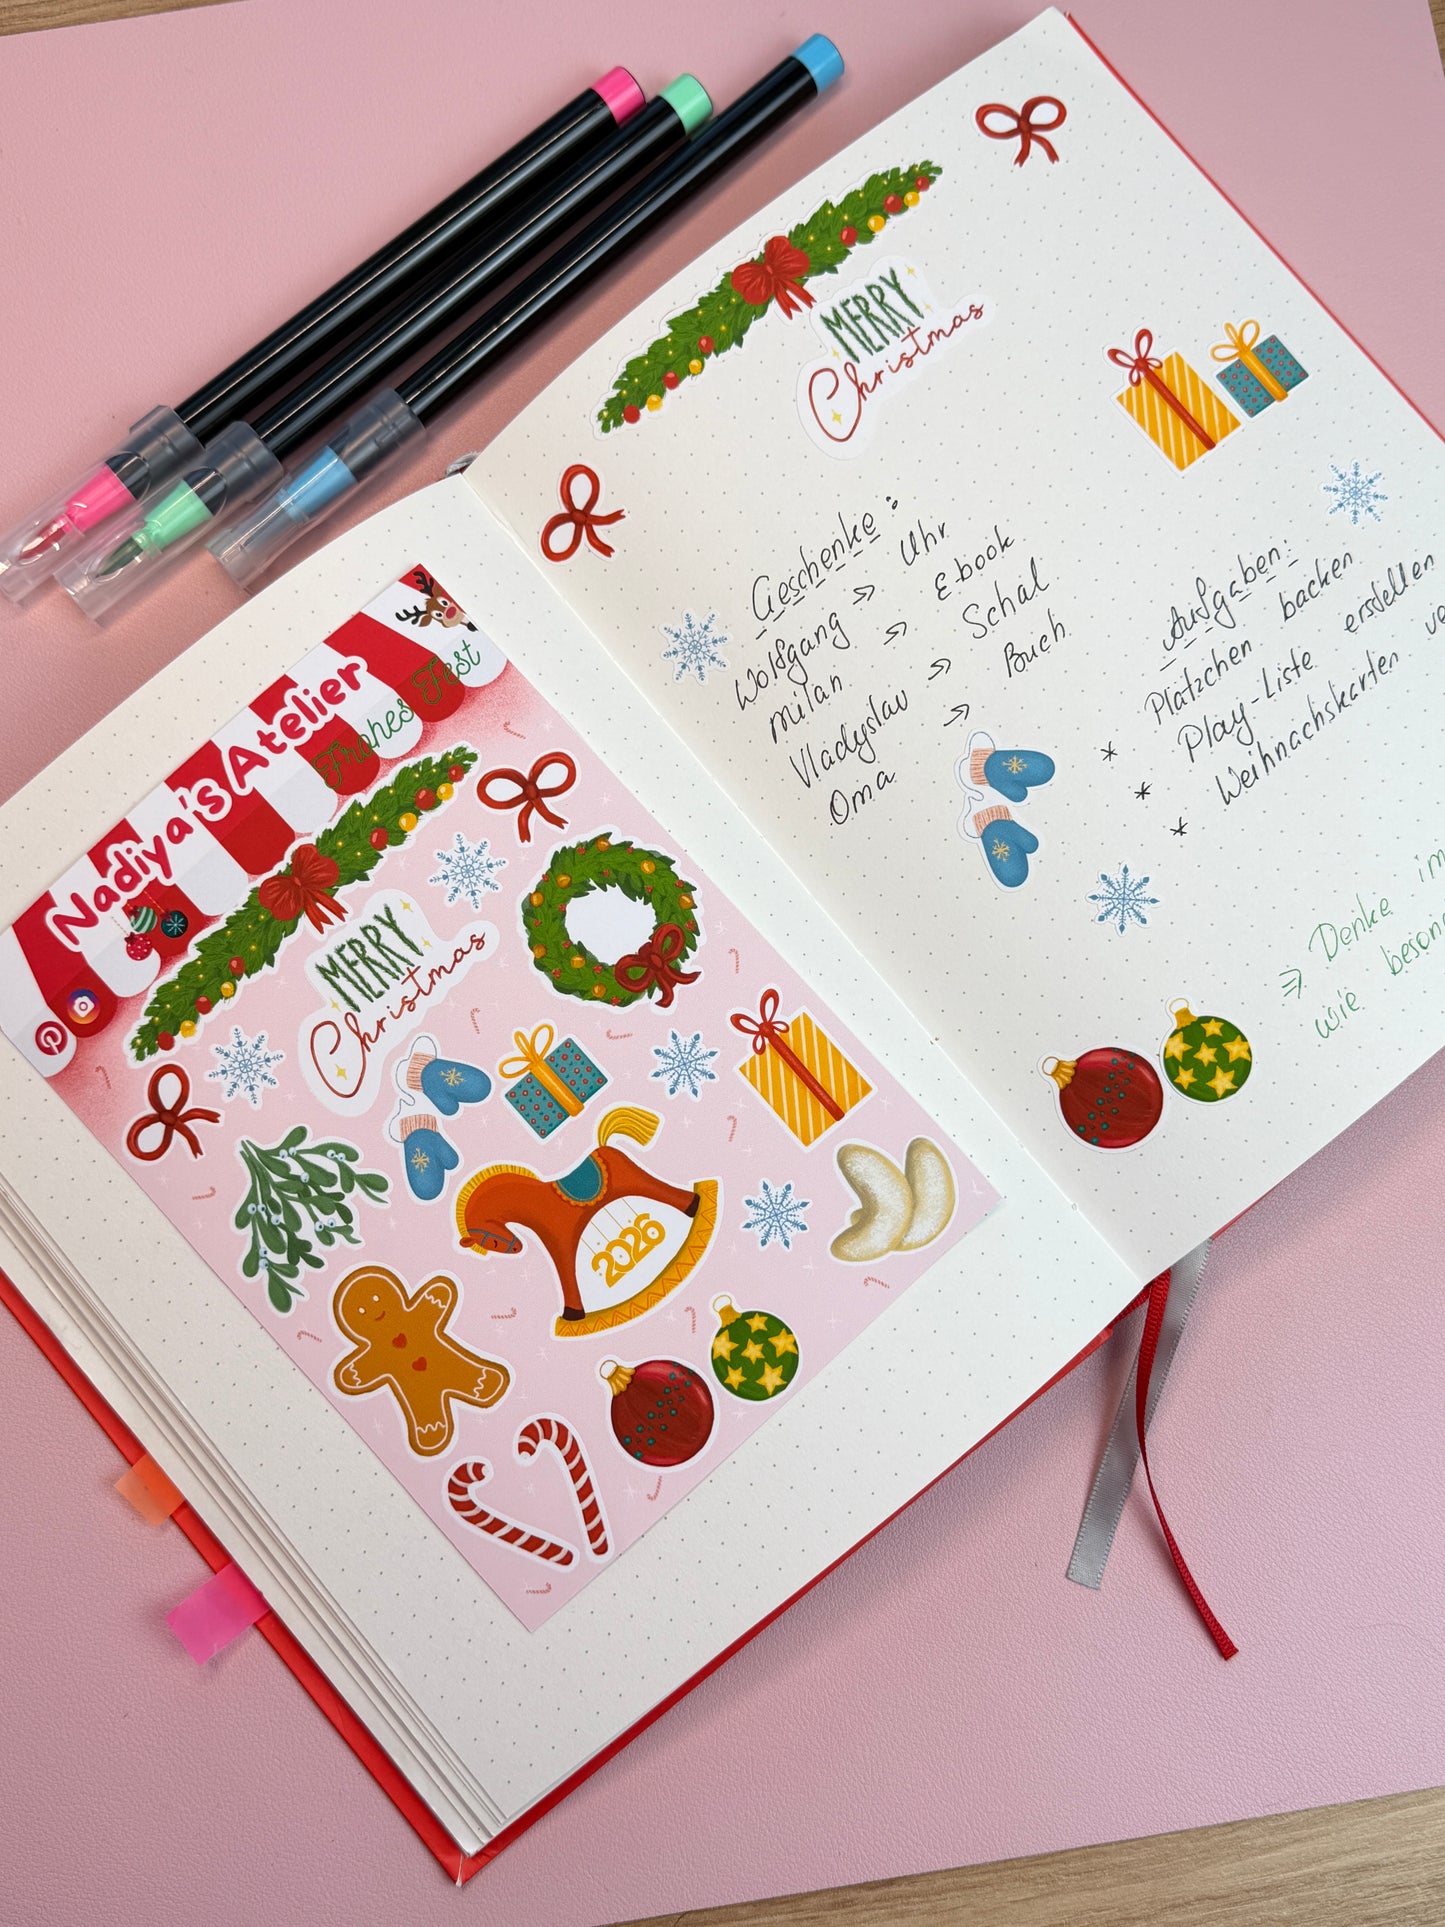 Nadiya's Atelier
Frohes Fest
MERRY
Christmas
2026
MERRY
Christmas
Geschenke:
Wolfgang => Uhr
Milan => Ebook
Vladyslav => Schal
Oma => Buch
Aufgaben:
* Plätzchen backen
* Play-Liste erstellen
* Weihnachskarten
=> Denke
wie